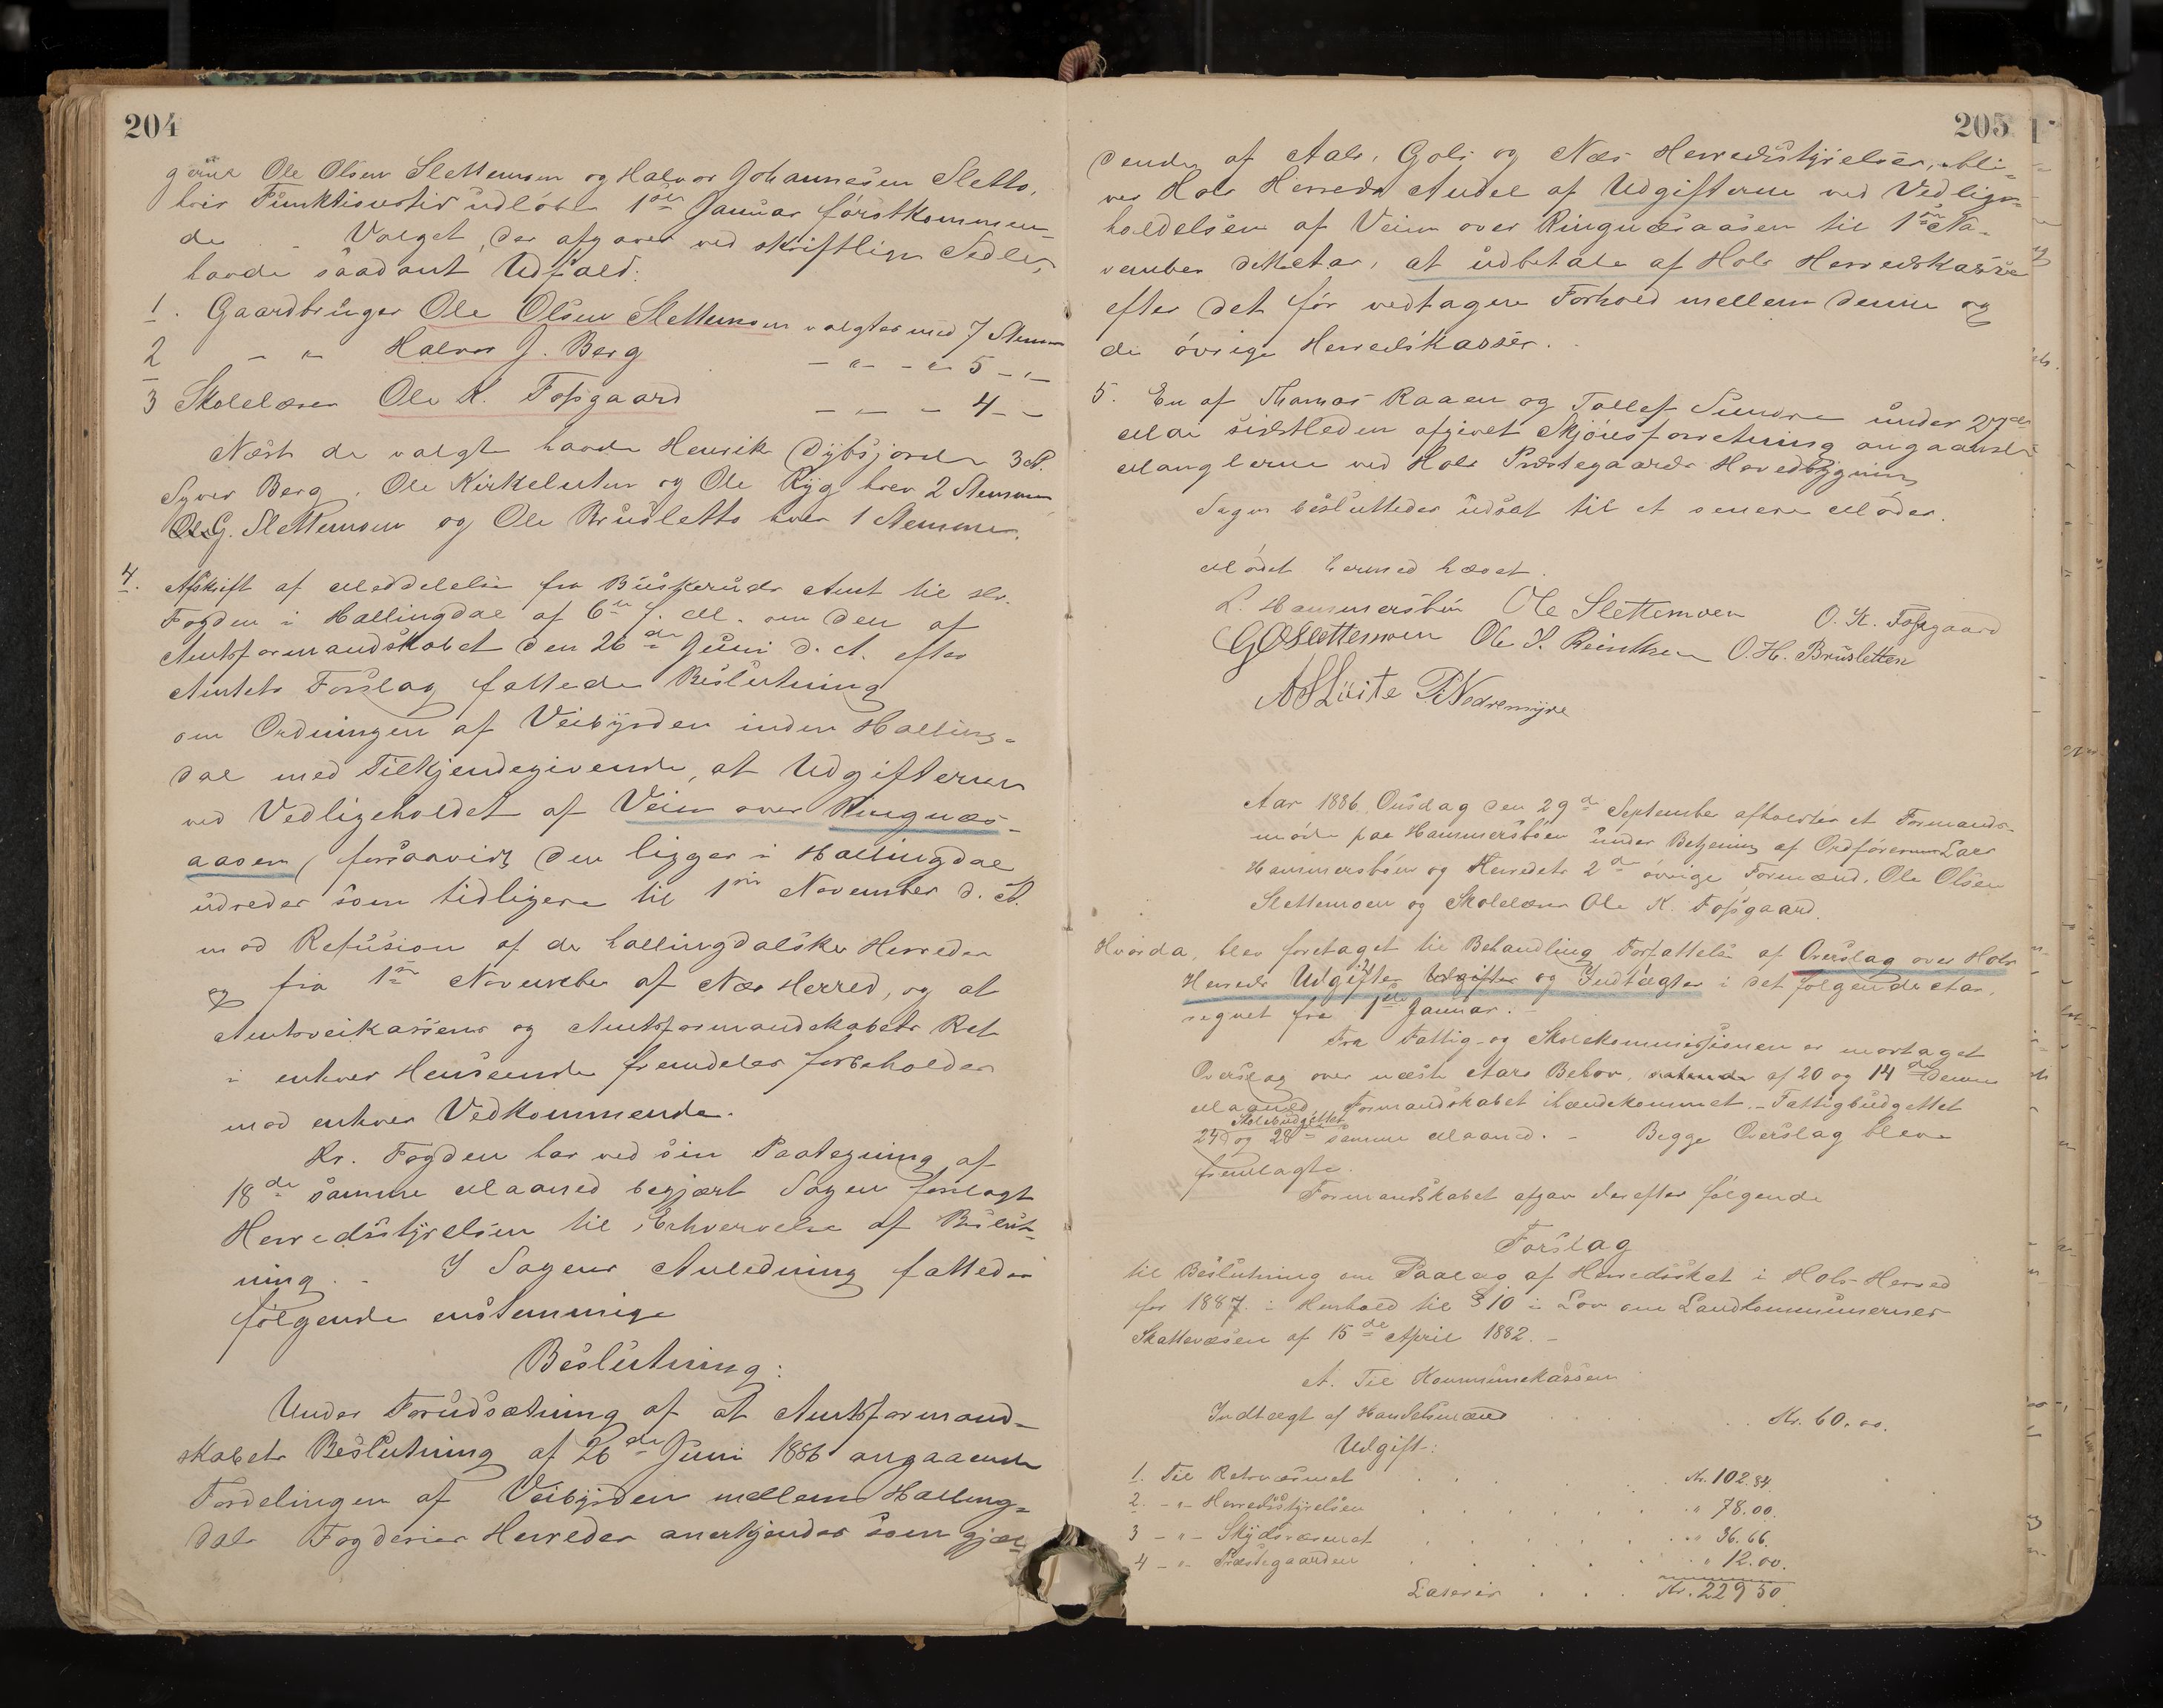 204
gaus Ole Olsen Slettemoen og Halvor Johannesen Sletto,
hvis Funktionstid udløber 1ste Januar førstkommen-
de. - Valget, der afgaves ved skriftlige Sedler,
havde saadant Udfald:
1. Gaardbruger Ole Olsen Slettemoen valgtes med 7 Stemmer
2 - " - Halvor J. Berg - " - - " - 5 - " -
3 Skolelærer Ole K. Fossgaard - " - - 4 - -
Næst de valgte havde Henrik Dybsjord 3 St.
Syver Berg, Ole Kirkeluten og Ole Ryg hver 2 Stemmer
G. Slettemoen og Ole Brusletto hver 1 Stemme.
4. Afskrift af Meddelelse fra Buskeruds Amt til Hr.
Fogden i Hallingdal af 6te f. M. om den af
Amtsformandskabet den 26de Juni d. A. efter
Amtets Forslag fattede Beslutning
om Ordningen af Veibyrden inden Halling-
dal med Tilkjendegivende, at Udgifterne
ved Vedligeholdet af Veien over Ringnæs-
aasen, forsaavidt den ligger i Hallingdal
udredes som tidligere til 1ste November d. A.
mod Refusion af de hallingdalske Herreder
og fra 1ste November af Næs Herred, og at
Amtsveikassens og Amtsformandskabets Ret
i enhver Henseende fremdeles forbeholdes
mod enhver Vedkommende.
Hr. Fogden har ved sin Paategning af
18de samme Maaned begjært Sagen forelagt
Herredsstyrelsen til Erhvervelse af Beslut-
ning. - I Sagens Anledning fattedes
følgende enstemmige
Beslutning:
Under Forudsætning af at Amtsformand-
skabets Beslutning af 26de Juni 1886 angaaende
Fordelingen af Veibyrden mellem Halling-
dals Fogderies Herreder anerkjendes som gjæl-
205
dende af Aals, Gols og Næs Herredsstyrelser, bli-
ver Hols Herreds Andel af Udgifterne ved Vedlige-
holdelsen af Veien over Ringnæsaasen til 1ste No-
vember dette Aar, at udbetale af Hols Herredskasse
efter det før vedtagne Forhold mellem denne og
de øvrige Herredskasser.
5. En af Thomas Raaen og Tollef Sundre under 27de
Mai sidstleden afgivet Skjønsforretning angaaende
Manglerne ved Hols Præstegaards Hovedbygning
Sagen besluttedes udsat til et senere Møde.
Mødet hermed hævet.
L. Hammersbøen Ole Slettemoen O. K. Fossgaard
G O Slettemoen Ole T. Reinthon O. H. Brusletten
A S Lüite P. Nedremyre
Aar 1886 Onsdag den 29de September afholdtes et Formands-
møde paa Hammersbøen under Betjening af Ordfører Lars
Hammersbøen og Herredets 2de øvrige Formænd, Ole Olsen
Slettemoen og Skolelærer Ole K. Fossgaard.
Hvorda, blev foretaget til Behandling Forfattelse af Overslag over Hols
Herreds Udgifter Udgifter og Indtægter i det følgende Aar,
regnet fra 1ste Januar. -
Fra Fattig- og Skolekommissionen er modtaget
Overslag over næste Aars Behov, af 20 og 14de denne
Maaned, Formandskabet ihændekommet. - Fattigbudgettet
Skolebudgettet
24 og 28 samme Maaned. - Begge Overslag bleve
fremlagte.
Formandskabet afgav derefter følgende
Forslag
til Beslutning om Paalæg af Herredsskat i Hols Herred
for 1887. i Henhold til § 10 i Lov om Landkommunernes
Skattevæsen af 15de April 1882. -
A. Til Kommunekassen
Indtægt af Handelsmænd . . . . Kr. 60.00.
Udgift:
1. Til Retsvæsenet . . . . Kr. 102.84.
2. - " - Herredsstyrelsen . . . . " 78.00.
3 - " - Skydsvæsenet . . . . " 36.66.
4 - " - Præstegaarden . . . . " 12.00.
Lateris . . . Kr. 229 50.